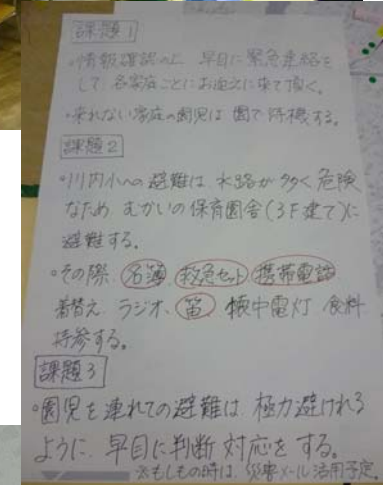 課題1
・情報確認の上、早目に緊急連絡を
して、各家庭ごとにお迎えに来て頂く。
・来れない家庭の園児は園で待機する。
課題2
・川内小への避難は水路が多く危険
なため むかいの保育園舎(3F建て)に
避難する。
・その際、名簿 救急セット 携帯電話
着替え ラジオ、笛 懐中電灯 食料
持参する。
課題3
・園児を連れての避難は 極力避けれる
ように、早目に判断 対応を する。
※もしもの時は、災害メール活用予定。